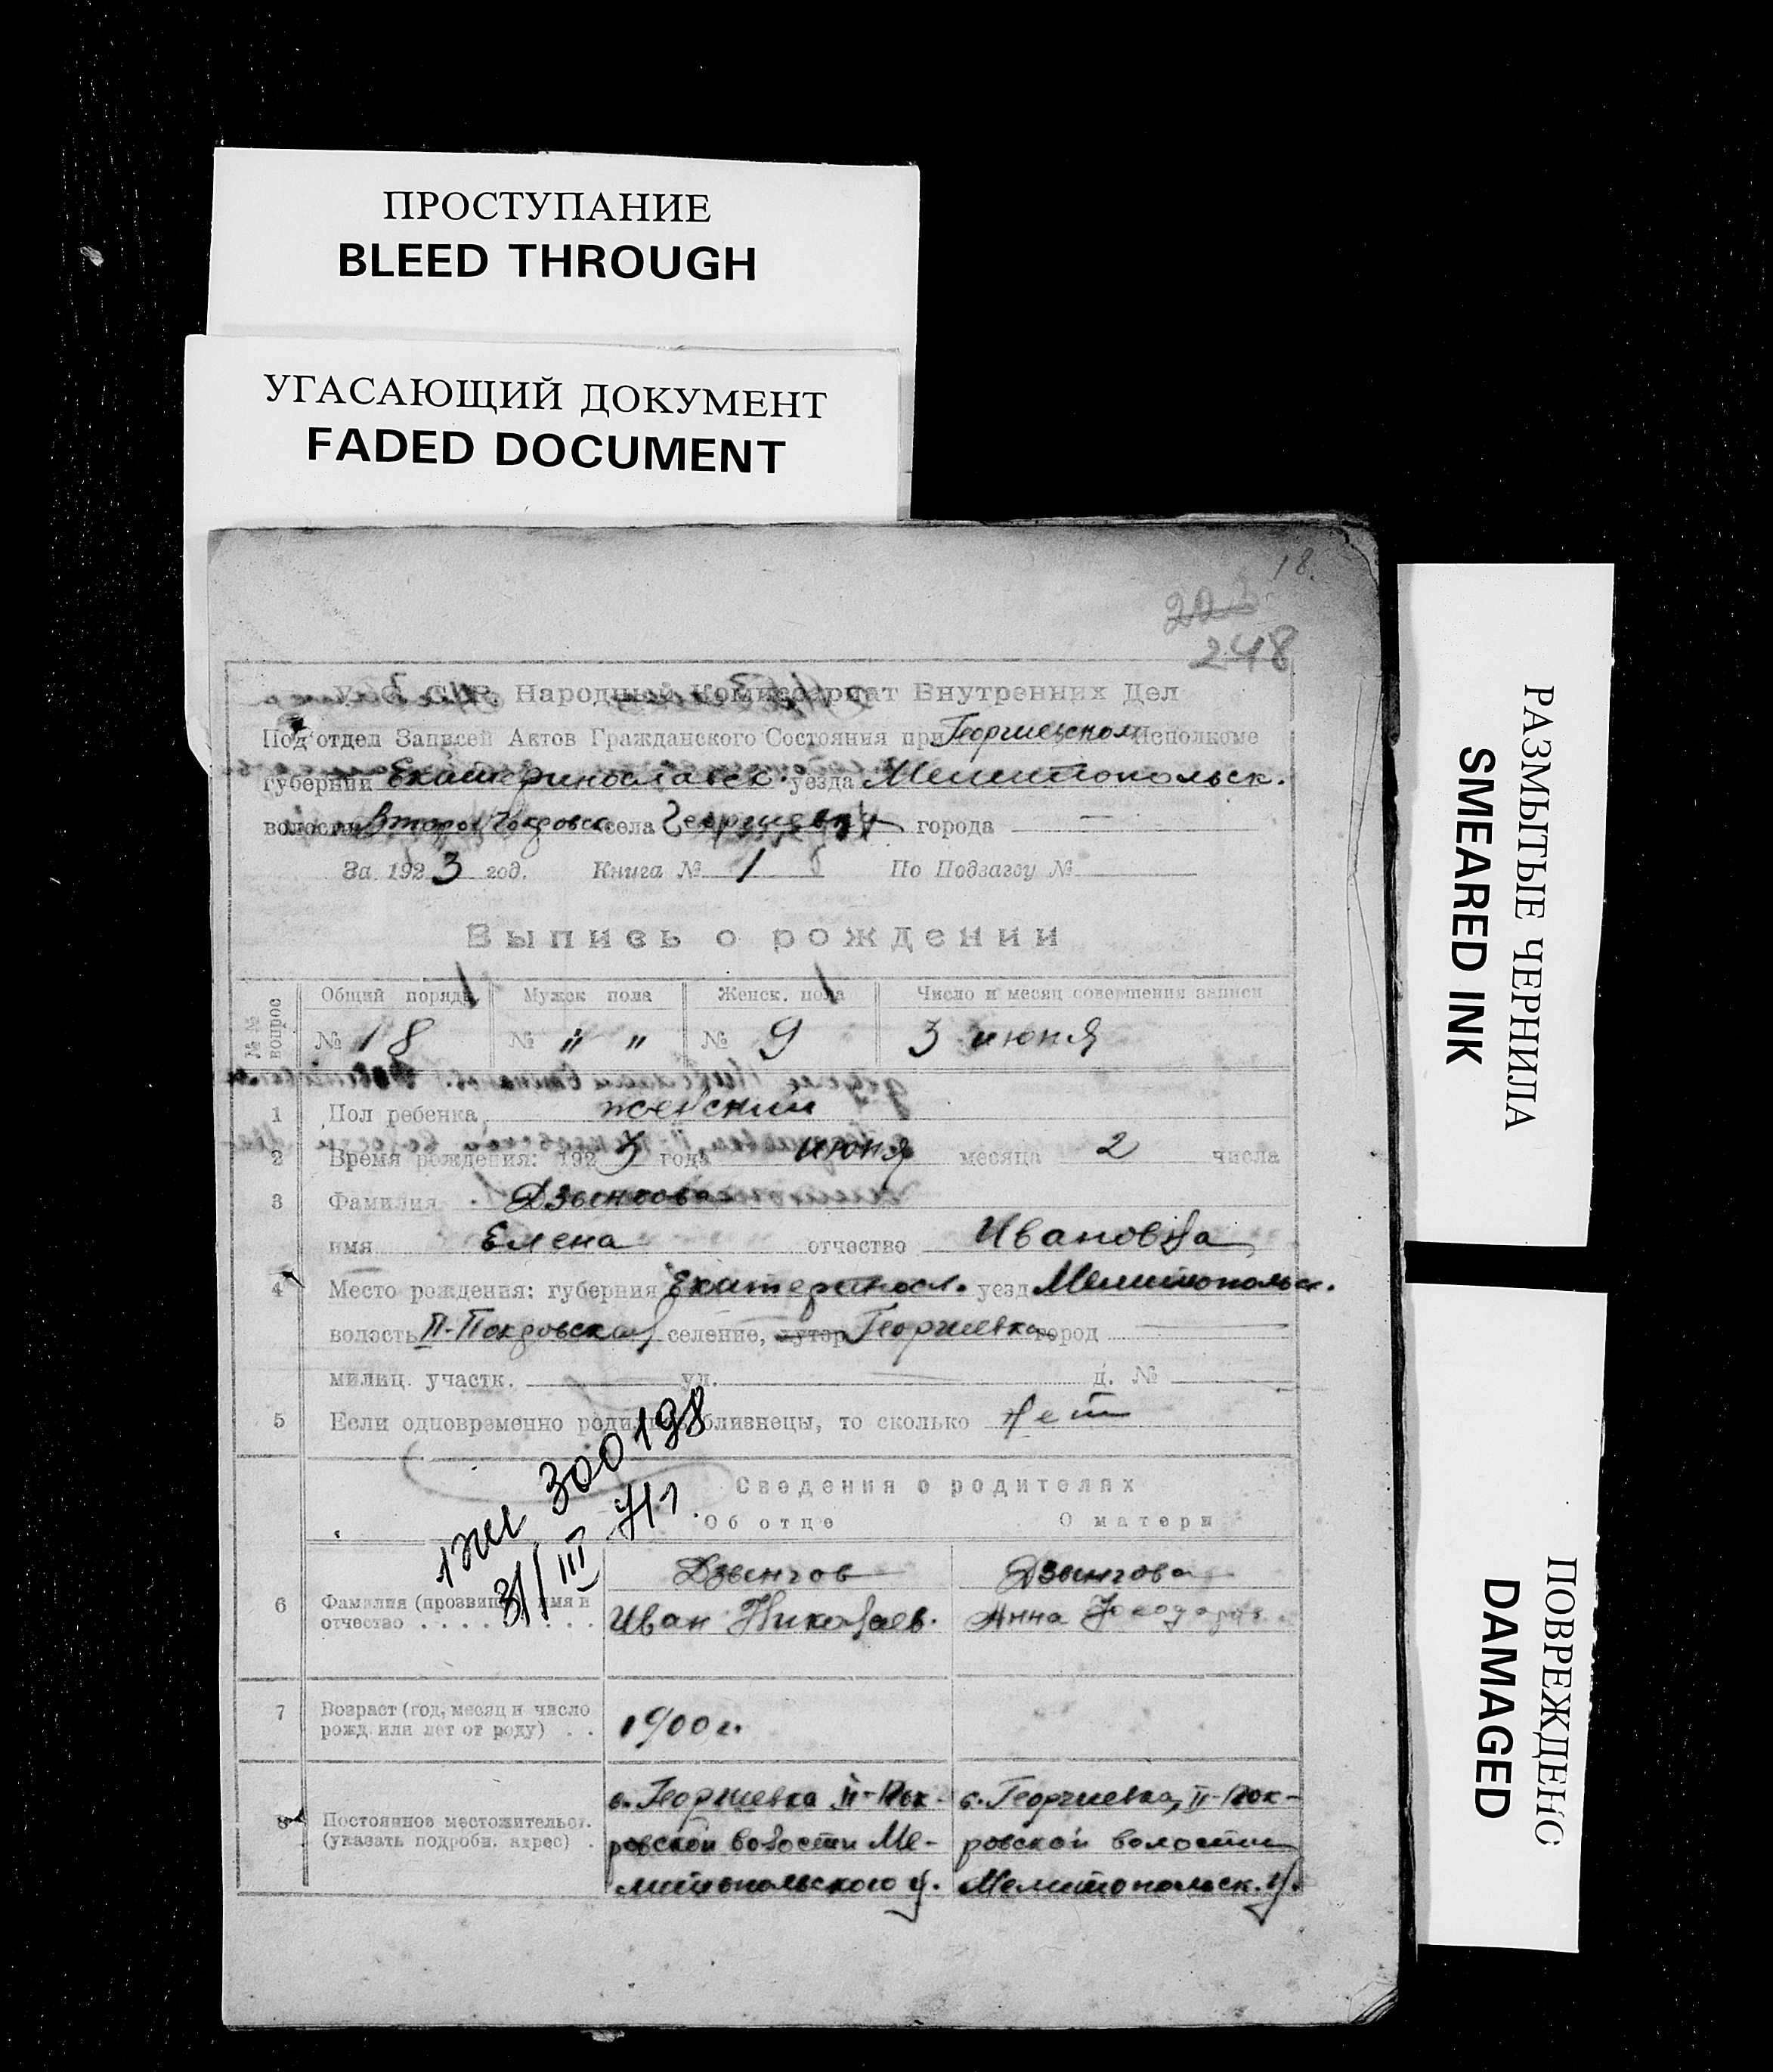 ПРОСТУПАНИЕ
BLEED THROUGH
УГАСАЮЩИЙ ДОКУМЕНТ
FADED DOCUMENT
18.
223
248
Народный Комиссариат Внутренних Дел
Под'отдел Записей Актов Гражданского Состояния при Георгиевском Исполкоме
губернии Екатеринославск. уезда Мелитопольск.
волости Второ Покровск села Георгиевка города —
За 1923 год. Книга № 1 По Подзагсу №
Выпись о рождении
№№ вопрос
Общий порядк. Мужск пола Женск. пола Число и месяц совершения записи
№ 18 № " " № 9 3 июня
1 Пол ребенка женский
2 Время рождения: 1923 года июня месяца 2 числа
3 Фамилия Дзынгова
имя Елена отчество Ивановна
4 Место рождения: губерния Екатериносл. уезд Мелитопольск.
волость II-Покровская селение, хутор Георгиевка город —
милиц. участк. — ул. — д. № —
5 Если одновременно родились близнецы, то сколько Нет
300198
31/III 71г.
Сведения о родителях
Об отце О матери
6 Фамилия (прозвище) имя и отчество . . . .
Дзынгов Дзынгова
Иван Николаев. Анна
7 Возраст (год, месяц и число рожд. или лет от роду) . .
1900 г.
8 Постоянное местожительст. (указать подробн. адрес) .
с. Георгиевка II-Пок- с. Георгиевка, II-Пок-
ровской волости Ме- ровской волости
литопольского у. Мелитопольск. у.
РАЗМЫТЫЕ ЧЕРНИЛА
SMEARED INK
ПОВРЕЖДЕНО
DAMAGED